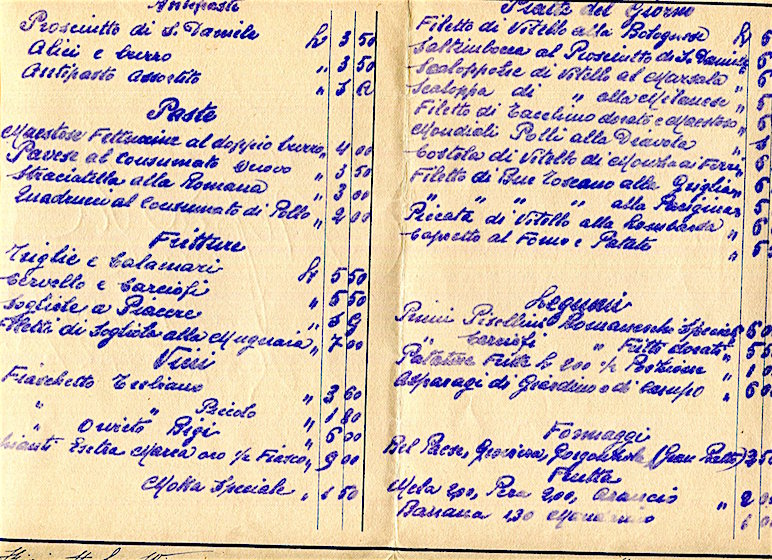 Antipasto
Prosciutto di S. Daniele Lr 3 50
Alici e burro " 3 50
Antipasto Assortito "
Paste
Maestose Fettuccine al doppio burro " 4 00
Pavese al Consumato " 3 50
Straciatella alla Romana " 3 00
Quadrucci al Consumato di Pollo " 2 00
Fritture
Triglie e Calamari Lr 5 50
Cervello e Carciofi " 5 50
Sogliole a Piacere " S G
Filetti di Sogliola alla Mugnaia " 7 00
Vini
Fiaschetto Trebiano " 3 60
" " Piccolo " 1 80
" Orvieto Bigi " 6 00
Chianti Extra Marca oro 1/2 Fiasco " 9 00
Moka Speciale " 1 50
Piatti del Giorno
Filetto di Vitello alla Bolognese Lr 6
Saltimbocca al Prosciutto di S. Daniele "
Scaloppine di Vitello al Marsala "
Scaloppa di " alla Milanese "
Filetto di Tacchino dorato e Maestoso "
Mondiali Polli alla Diavola "
Costola di Vitello di Monza ai Ferri
Filetto di Bue Toscano alla Griglia "
" " " " alla Parigina "
Piccata di Vitello alla Lombarda "
Capretto al Forno e Patate "
Legumi
Primi Pisellini Romaneschi Speciali 6 0
" Carciofi " Fritti dorati " 5 5
Patatine Fritte Lr 2 00 1/2 Porzione " 1 0
Asparagi di Giardino o di Campo " 6 0
Formaggi
Bel Paese, Groviera, Gorgonzola (Gran Piatto) 3 50
Frutta
Mela 2,00, Pera 2,00, Arancio " 2 0
Banana 1,30 Mandarino 1 0